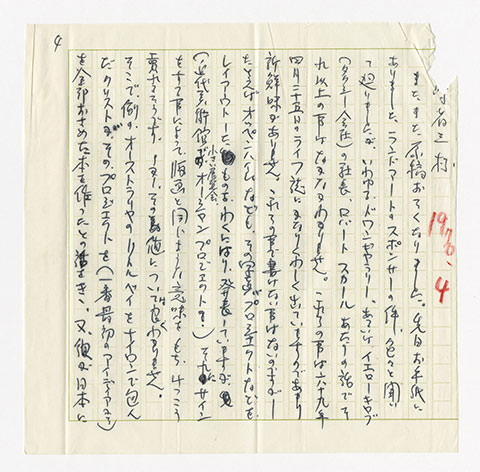 4
省三様
1970、4
またまた原稿おそくなりました。先日お手紙に
ありました、ランドアートのスポンサーの件、色々と聞い
て廻りましたが、いわゆるドワンギャラリー、あるいはイエローキャブ
(タクシー会社)の社長、ロバートスカールあたりの話でそ
れ以上の事はなかなかわかりません。これらの事は六九年
四月二十五日のライフ誌にかなりくわしく出ていますのであまり
新鮮味がありません。これらの事で書けない事はないのですが―
たとえばオッペンハイムなども、その写真やプロジェクトなどを
レイアウトしたものをわくにはり、発表していますが、
(近代美術館での小さい展覧会、オーシャンプロジェクトを・)それにサイン
をする事によって、版画と同じような意味をもち、けっこう
売れるそうです。しかし、その裏側については良くわかりません。
そこで、例のオーストラリヤのリトルベイをナイロンで包ん
だクリストが、そのプロジェクトを(一番最初のアイディアまで)
を全部おさめた本を作ったとの話をきき、又、彼が日本に